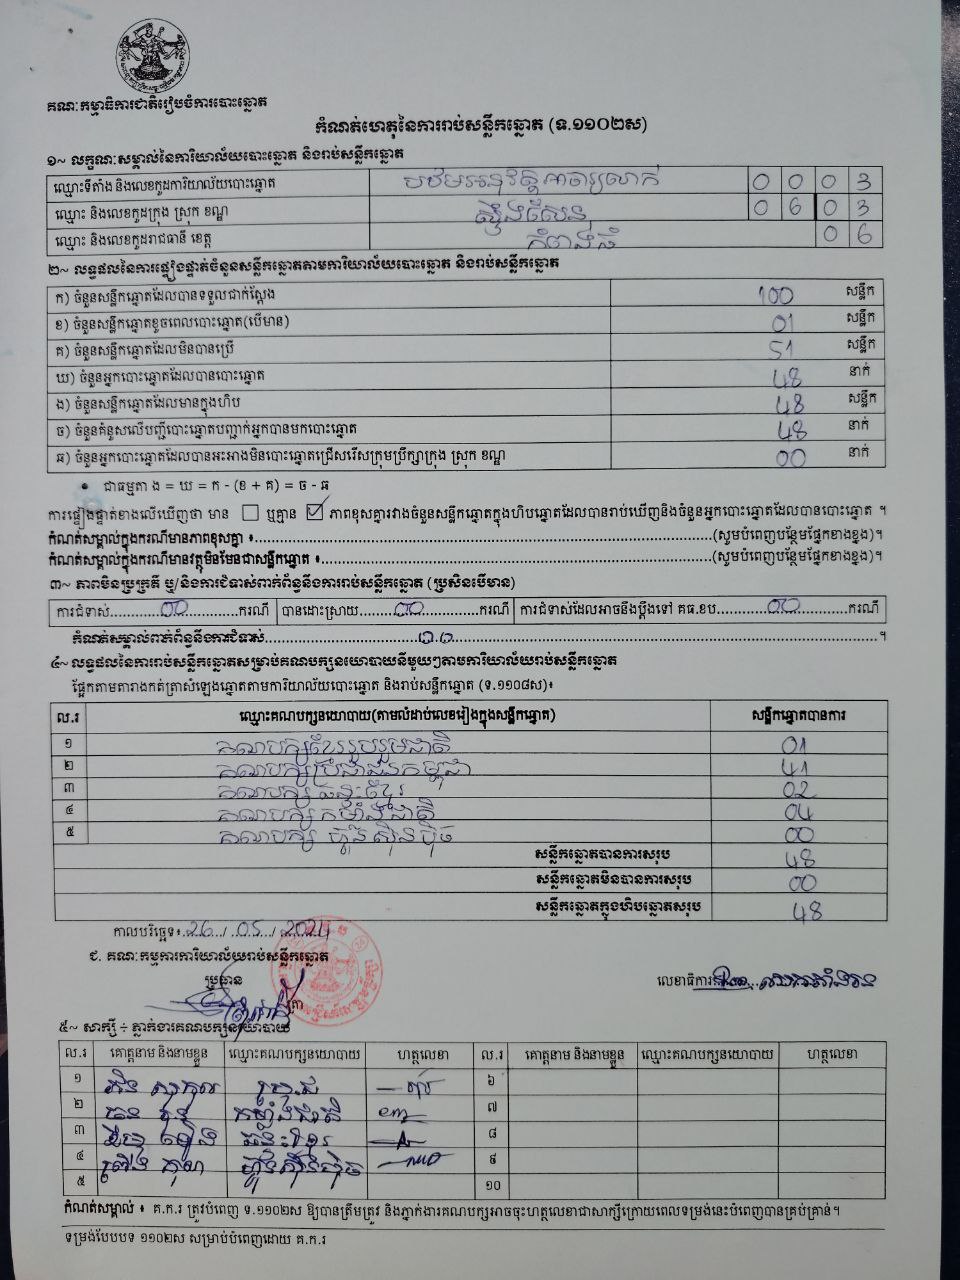 គណៈកម្មាធិការជាតិរៀបចំការបោះឆ្នោត
កំណត់ហេតុនៃការរាប់សន្លឹកឆ្នោត (ទ.១១០២ស)
១~ លក្ខណៈសម្គាល់នៃការិយាល័យបោះឆ្នោត និងរាប់សន្លឹកឆ្នោត
ឈ្មោះទីតាំង និងលេខកូដការិយាល័យបោះឆ្នោត បឋមអនុវត្ត 0 0 0 3
ឈ្មោះ និងលេខកូដក្រុង ស្រុក ខណ្ឌ ស្ទឹងសែន 0 6 0 3
ឈ្មោះ និងលេខកូដរាជធានី ខេត្ត កំពង់ធំ 0 6
២~ លទ្ធផលនៃការផ្ទៀងផ្ទាត់ចំនួនសន្លឹកឆ្នោតតាមការិយាល័យបោះឆ្នោត និងរាប់សន្លឹកឆ្នោត
ក) ចំនួនសន្លឹកឆ្នោតដែលបានទទួលជាក់ស្តែង 100 សន្លឹក
ខ) ចំនួនសន្លឹកឆ្នោតខូចពេលបោះឆ្នោត(បើមាន) 01 សន្លឹក
គ) ចំនួនសន្លឹកឆ្នោតដែលមិនបានប្រើ 51 សន្លឹក
ឃ) ចំនួនអ្នកបោះឆ្នោតដែលបានបោះឆ្នោត 48 នាក់
ង) ចំនួនសន្លឹកឆ្នោតដែលមានក្នុងហិប 48 សន្លឹក
ច) ចំនួនគំនូសលើបញ្ជីបោះឆ្នោតបញ្ជាក់អ្នកបានមកបោះឆ្នោត 48 នាក់
ឆ) ចំនួនអ្នកបោះឆ្នោតដែលបានអះអាងមិនបោះឆ្នោតជ្រើសរើសក្រុមប្រឹក្សាក្រុង ស្រុក ខណ្ឌ 00 នាក់
• ជាធម្មតា ង = ឃ = ក - (ខ + គ) = ច - ឆ
ការផ្ទៀងផ្ទាត់ខាងលើឃើញថា មាន ☐ ឬគ្មាន ☑ ភាពខុសគ្នារវាងចំនួនសន្លឹកឆ្នោតក្នុងហិបឆ្នោតដែលបានរាប់ឃើញនិងចំនួនអ្នកបោះឆ្នោតដែលបានបោះឆ្នោត ។
កំណត់សម្គាល់ក្នុងករណីមានភាពខុសគ្នា ៖..........(សូមបំពេញបន្ថែមផ្នែកខាងខ្នង)។
កំណត់សម្គាល់ក្នុងករណីមានវត្ថុមិនមែនជាសន្លឹកឆ្នោត ៖..........(សូមបំពេញបន្ថែមផ្នែកខាងខ្នង)។
៣~ ភាពមិនប្រក្រតី ឬ/និងការជំទាស់ពាក់ព័ន្ធនឹងការរាប់សន្លឹកឆ្នោត (ប្រសិនបើមាន)
ការជំទាស់.....00.....ករណី បានដោះស្រាយ.....00.....ករណី ការជំទាស់ដែលអាចនឹងប្តឹងទៅ គធ.ខប.....00.....ករណី
កំណត់សម្គាល់ពាក់ព័ន្ធនឹងការជំទាស់..........00..........។
៤~ លទ្ធផលនៃការរាប់សន្លឹកឆ្នោតសម្រាប់គណបក្សនយោបាយនីមួយៗតាមការិយាល័យរាប់សន្លឹកឆ្នោត
ផ្អែកតាមតារាងកត់ត្រាសំឡេងឆ្នោតតាមការិយាល័យបោះឆ្នោត និងរាប់សន្លឹកឆ្នោត (ទ.១១០៨ស)៖
ល.រ ឈ្មោះគណបក្សនយោបាយ(តាមលំដាប់លេខរៀងក្នុងសន្លឹកឆ្នោត) សន្លឹកឆ្នោតបានការ
១ គណបក្សខ្មែររួបរួមជាតិ 01
២ គណបក្សប្រជាជនកម្ពុជា 41
៣ គណបក្ស ឆន្ទៈខ្មែរ 02
៤ គណបក្ស កម្លាំងជាតិ 04
៥ គណបក្ស ហ្វ៊ុនស៊ិនប៉ិច 00
សន្លឹកឆ្នោតបានការសរុប 48
សន្លឹកឆ្នោតមិនបានការសរុប 00
សន្លឹកឆ្នោតក្នុងហិបឆ្នោតសរុប 48
កាលបរិច្ឆេទ៖ 26 / 05 / 2024
ជ. គណៈកម្មការការិយាល័យរាប់សន្លឹកឆ្នោត
ប្រធាន
ត្រា
លេខាធិការ
៥~ សាក្សី ÷ ភ្នាក់ងារគណបក្សនយោបាយ
ល.រ គោត្តនាម និងនាមខ្លួន ឈ្មោះគណបក្សនយោបាយ ហត្ថលេខា ល.រ គោត្តនាម និងនាមខ្លួន ឈ្មោះគណបក្សនយោបាយ ហត្ថលេខា
១ ៦
២ កម្លាំងជាតិ ៧
៣ ឆន្ទៈខ្មែរ ៨
៤ ហ្វ៊ុនស៊ិនប៉ិច ៩
៥ ១០
កំណត់សម្គាល់ ៖ គ.ក.រ ត្រូវបំពេញ ទ.១១០២ស ឱ្យបានត្រឹមត្រូវ និងភ្នាក់ងារគណបក្សអាចចុះហត្ថលេខាជាសាក្សីក្រោយពេលទម្រង់នេះបំពេញបានគ្រប់គ្រាន់។
ទម្រង់បែបបទ ១១០២ស សម្រាប់បំពេញដោយ គ.ក.រ